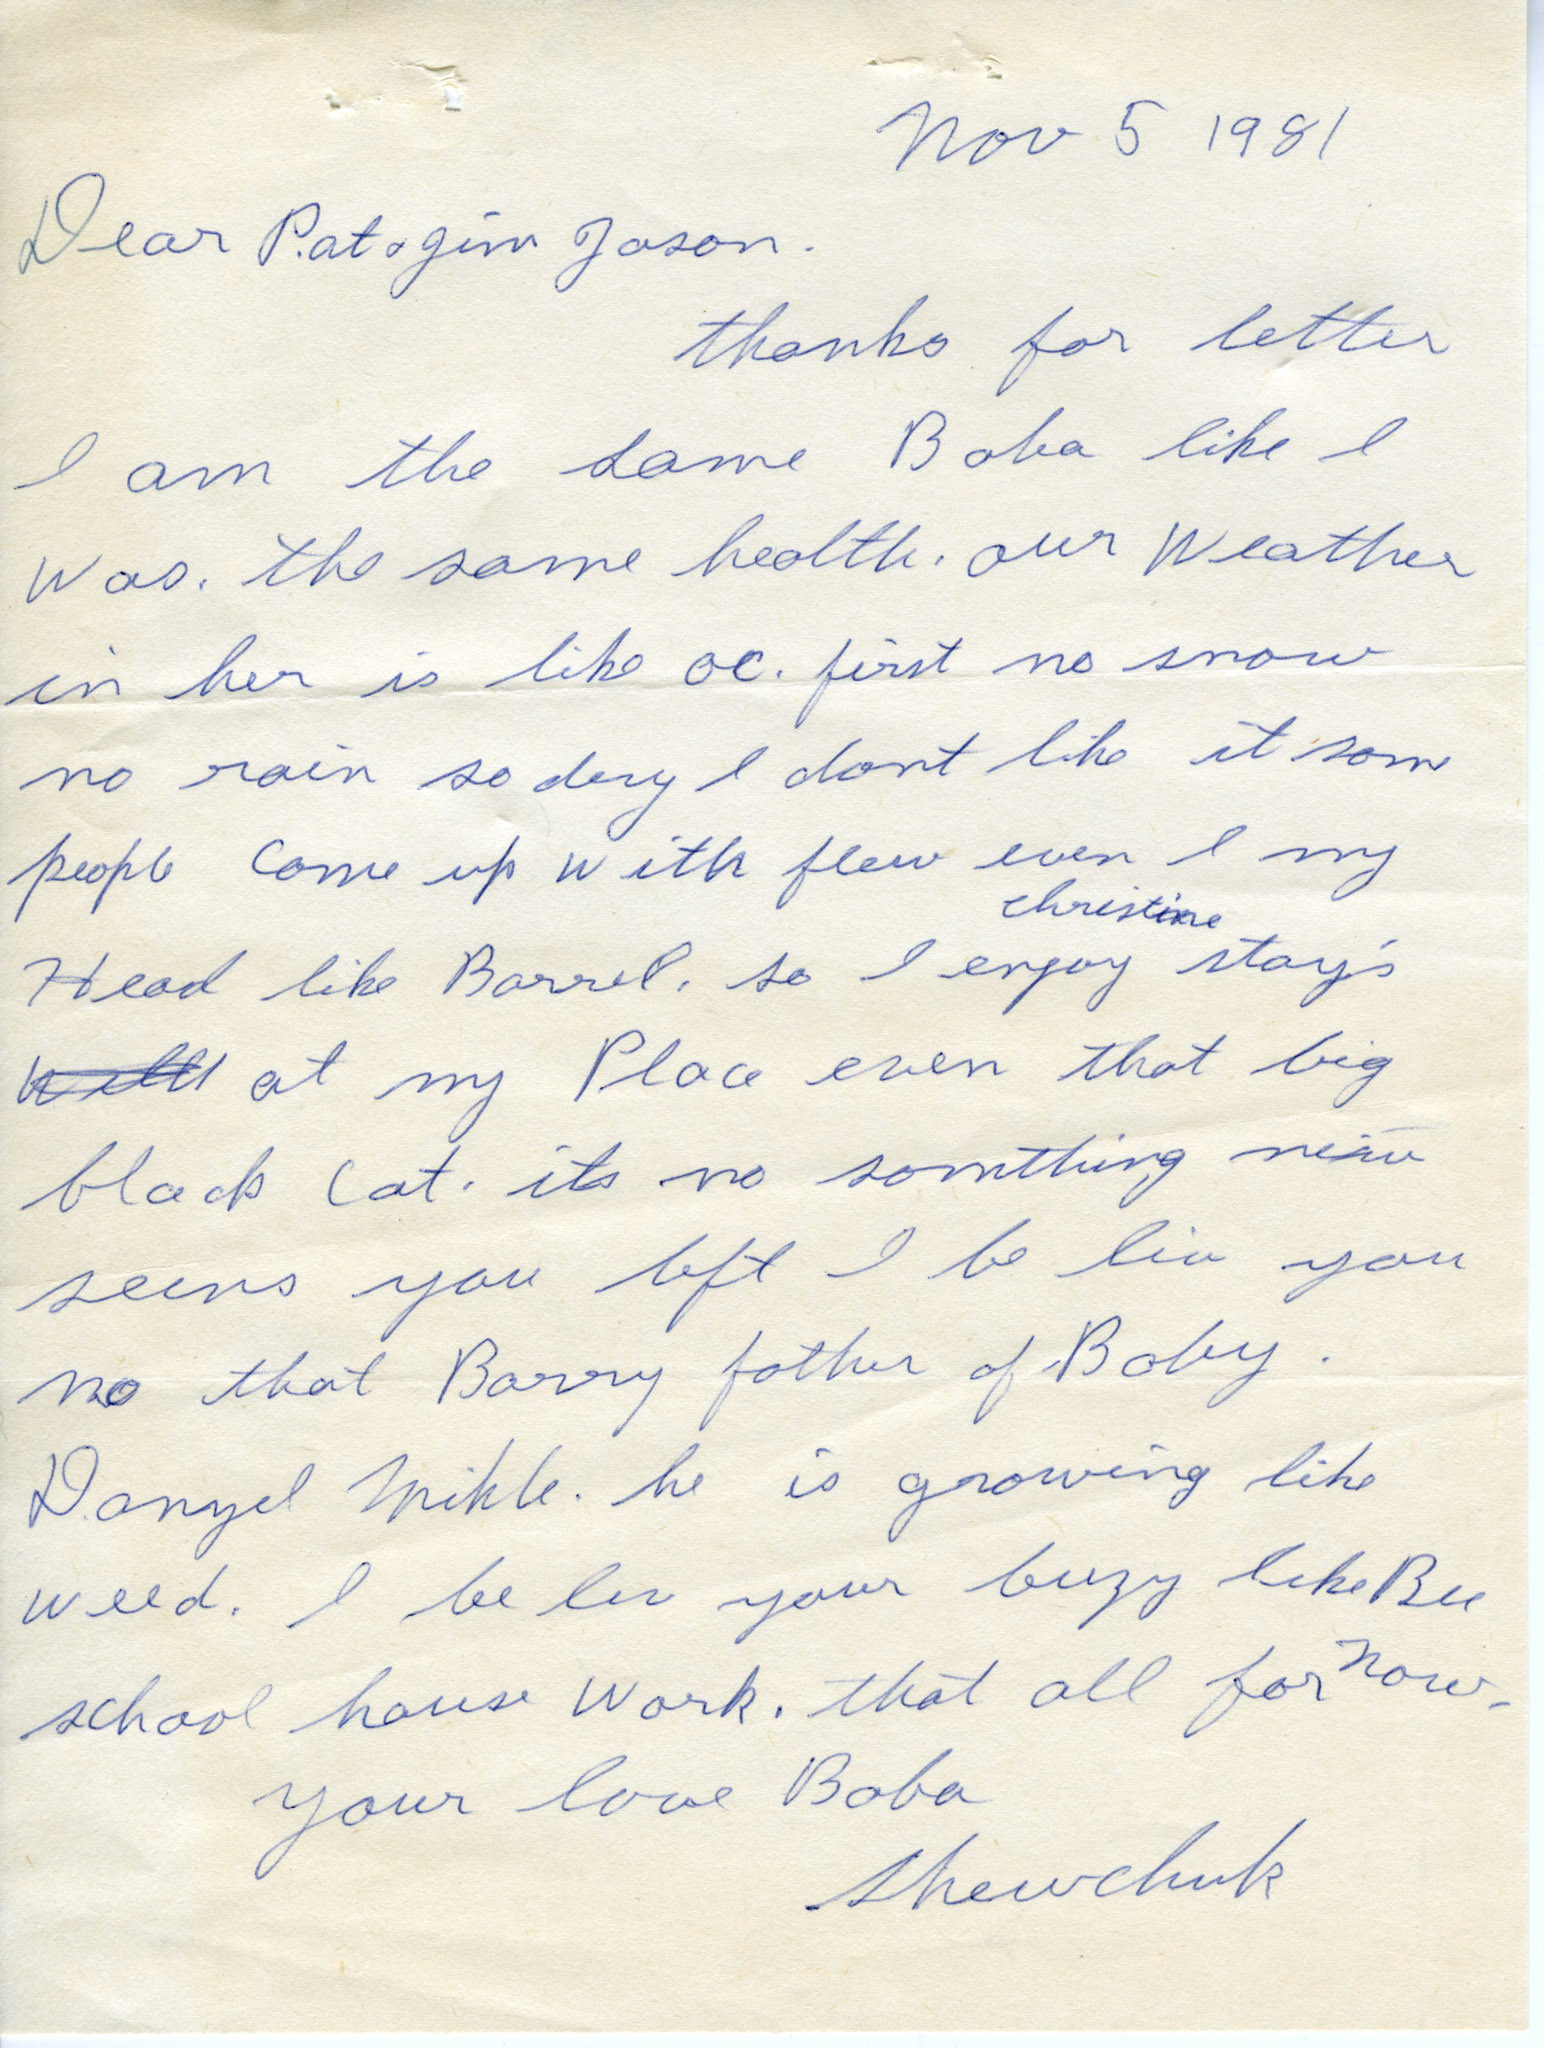 Nov 5 1981
Dear Pat & Jim Jason.
thanks for letter
I am the same Baba like I
was. the same health. our Weather
in her is like oc. first no snow
no rain so dery I dont like it som
people come up with flew even I my
christine
Head like Barrel. so I enjoy stay's
at my Place even that big
black Cat. its no somthing new
seens you left I be liv you
no that Barry father of Baby.
Danyel Mikle. he is growing like
weed. I be lev your buzy like Bee
school house work. that all for now.
your love Baba
Shewchuk